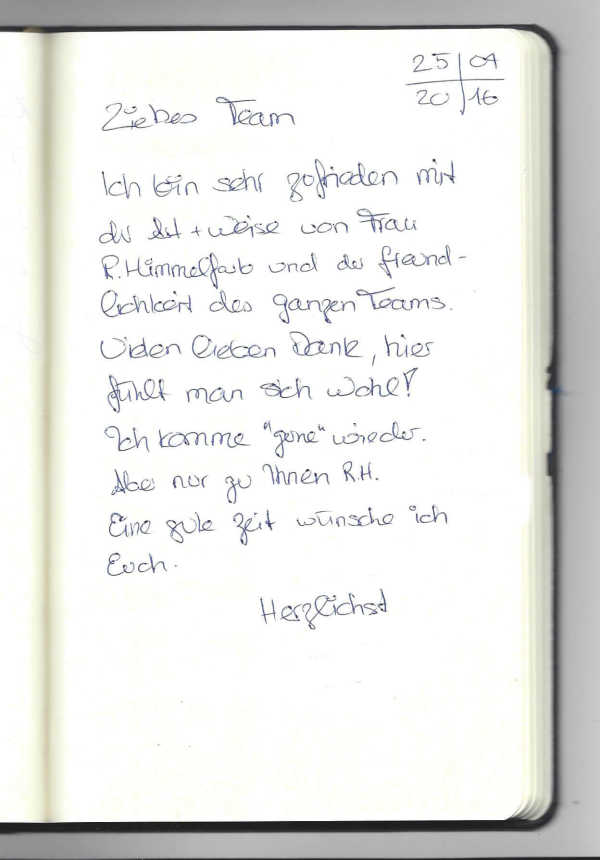 25 | 01
20 | 16
Liebes Team
Ich bin sehr zufrieden mit
der Art + Weise von Frau
R. Himmelfarb und der freund-
lichkeit des ganzen Teams.
Vielen lieben Dank, hier
fühlt man sich wohl!
Ich komme "gerne" wieder.
Aber nur zu Ihnen R.H.
Eine gute Zeit wünsche ich
Euch.
Herzlichst